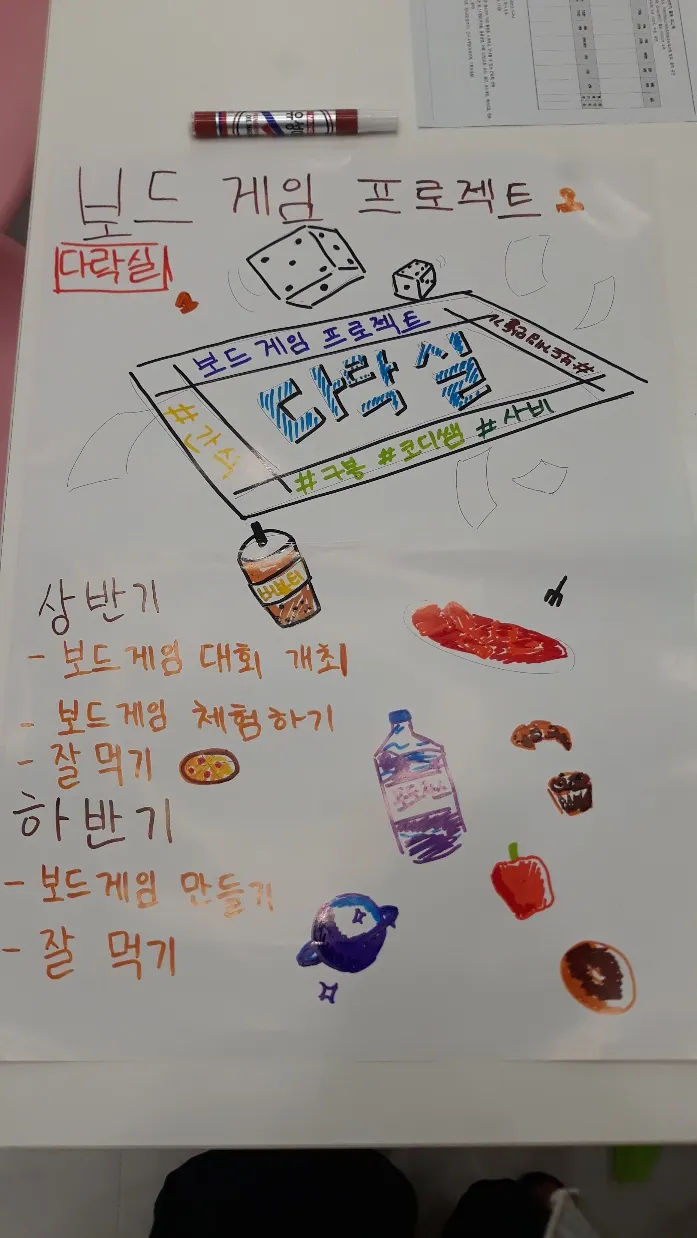 유성
보드 게임 프로젝트
다락실
보드게임 프로젝트
다락실
#간식
#구봉 #코디쌤 #사비
버블티
상반기
- 보드게임 대회 개최
- 보드게임 체험하기
- 잘 먹기
하반기
- 보드게임 만들기
- 잘 먹기